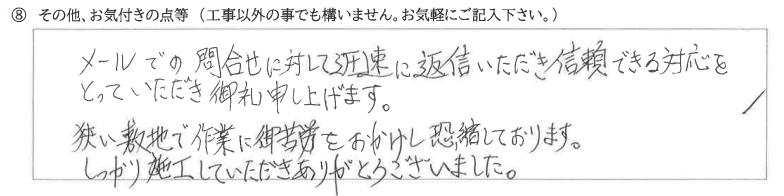 ⑧ その他、お気付きの点等（工事以外の事でも構いません。お気軽にご記入下さい。）
メールでの問合せに対して迅速に返信いただき信頼できる対応を
とっていただき御礼申し上げます。
狭い敷地で作業に御苦労をおかけし恐縮しております。
しっかり施工していただきありがとうございました。